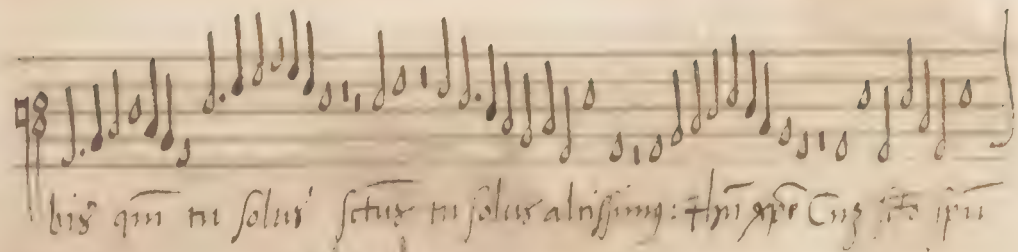 bis qm̄ tu solus sctus tu solus altissimꝰ: ihū xp̄e Cuȝ sc̄to spū